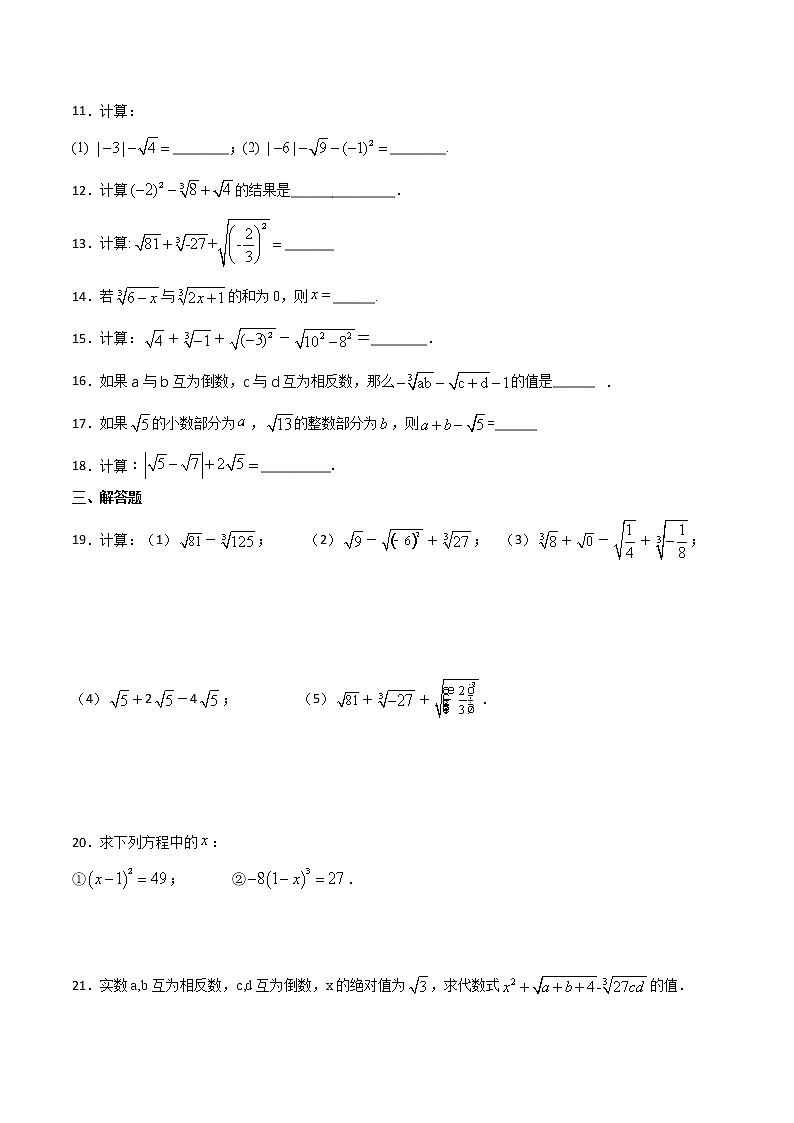 11.计算:
(1) |−3|−√4=________;(2) |−6|−√9−(−1)²=________.
12.计算(−2)²−∛8+√4的结果是_______________.
13.计算: √81+∛-27+√(-2/3)²=_______
14.若∛(6−x)与∛(2x+1)的和为0,则x=______.
15.计算: √4+∛−1+√(−3)²−√(10²−8²)=________.
16.如果a与b互为倒数,c与d互为相反数,那么−∛ab−√(c+d)−1的值是______ .
17.如果√5的小数部分为a,√13的整数部分为b,则a+b−√5=______
18.计算:|√5−√7|+2√5=__________.
三、解答题
19.计算:(1)√81−∛125; (2)√9−√(- 6)²+∛27; (3)∛8+√0−√(1/4)+∛(−1/8);
(4)√5+2√5−4√5; (5)√81+∛−27+√(2/3)².
20.求下列方程中的x:
①(x−1)²=49; ②−8(1−x)³=27.
21.实数a,b互为相反数,c,d互为倒数,x的绝对值为√3,求代数式x²+√(a+b+4)-∛27cd的值.